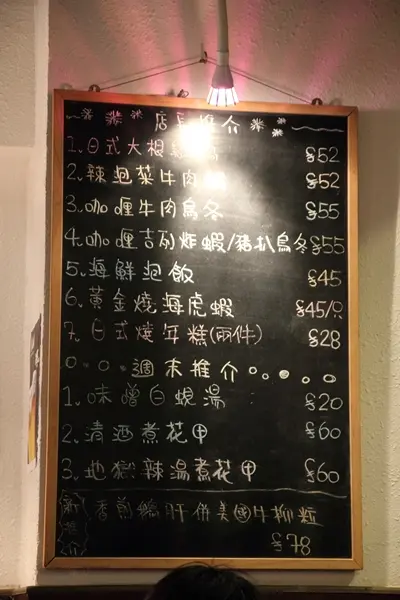 店長推介
1.日式大根 $52
2.辣泡菜牛肉 $52
3.咖喱牛肉烏冬 $55
4.咖喱吉列炸蝦/豬扒烏冬 $55
5.海鮮泡飯 $45
6.黃金燒海虎蝦 $45/只
7.日式燒年糕(兩件) $28
週末推介
1.味噌白蜆湯: $20
2.清酒煮花甲 $60
3.地獄辣湯煮花甲 $60
香煎鵝肝併美國牛柳粒
$78